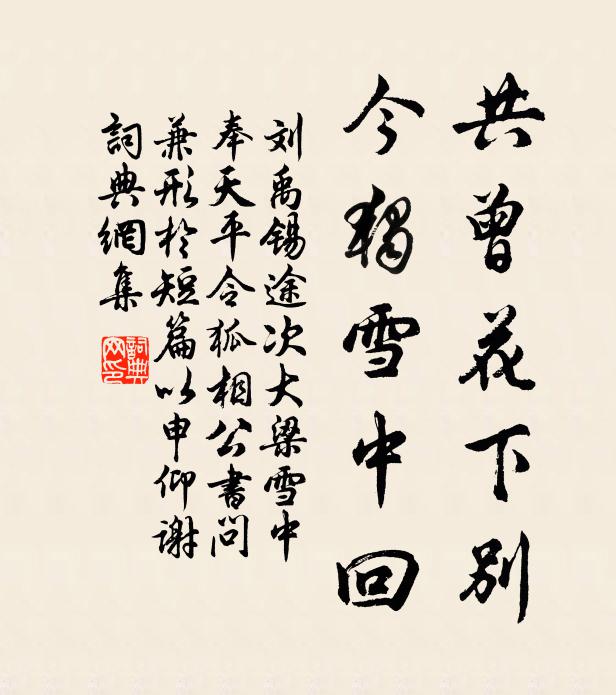 共曾花下別
今獨雪中回
刘禹锡途次大梁雪中
奉天平令狐相公書问
兼形於短篇以申仰谢
詞典網集
詞典网印